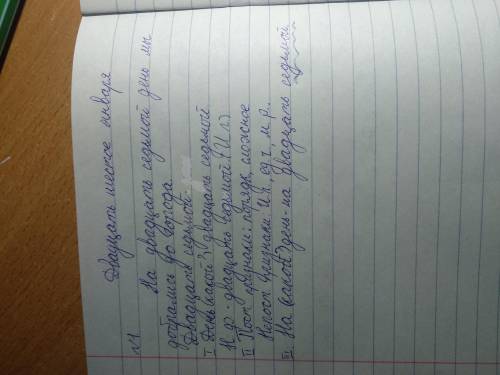 Двадцать шестое января
№1
На двадцать седьмой день мы
добрались до города
Двадцать седьмой.
I День какой? двадцать седьмой
Н.ф.- двадцать седьмой (И.п.)
II Пост. признаки: порядк, сложное
Непост. признаки И.п., ед.ч, м.р..
III На какой? день - на двадцать седьмой